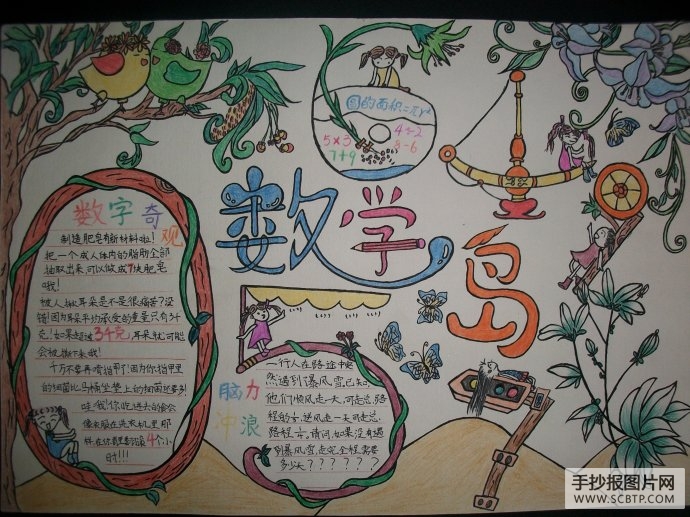 圆的面积=πr²
5×3
4÷2
7+9
8-6
数学
岛
数字奇观
制造肥皂有新材料啦！
把一个成人体内的脂肪全部
抽取出来可以做成7块肥皂
哦！
被人揪耳朵是不是很痛苦？没
错！因为耳朵平均承受的重量只有34
克！如果超过34克，耳朵就可能
会被揪下来哦！
千万不要再啃指甲了！因为你指甲里
的细菌比马桶坐垫上的细菌还要多！
哇！我！你吃进去的食会
像衣服在洗衣机里那
样在你的里翻滚4个小
时！！！
脑力
冲浪
一行人在路途中突
然遇到暴风雪，已知
他们顺风走一天，可走总路
程的，逆风走一天可走总
路程，请问，如果没有遇
到暴风雪，走完全程需要
多少天？？？？？？
手抄报图片网
WWW.SCBTP.COM